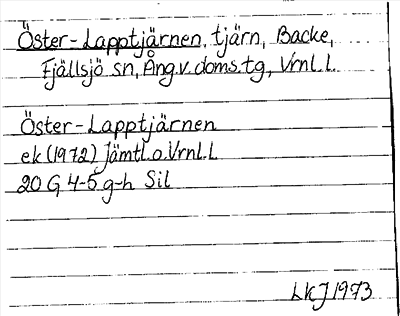 Öster-Lapptjärnen, tjärn, Backe,
Fjällsjö sn, Ång.v.doms.tg, Vrnl.l.
Öster-Lapptjärnen
ek (1972) Jämtl.o.Vrnl.l
20 G 4-5 g-h Sil
LKJ 1973